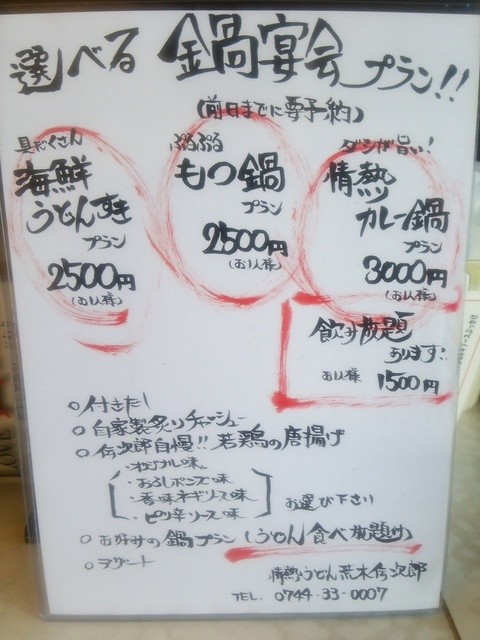 選べる 鍋宴会 プラン!!
(前日までに要予約)
具だくさん
海鮮
うどんすき
プラン
2500円
(お1人様)
ぷるぷる
もつ鍋
プラン
2500円
(お1人様)
ダシが旨い!
情熱
カレー鍋
プラン
3000円
(お1人様)
飲み放題
あります!
お1人様 1500円
○ 付きだし
○ 自家製炙りチャーシュー
○ 伝次郎自慢!! 若鶏の唐揚げ
・オリジナル味
・おろしポンズ味
・香味ネギソース味
・ピリ辛ソース味
お選び下さい
○ お好みの鍋プラン (うどん食べ放題付)
○ デザート
情熱うどん 荒木伝次郎
TEL. 0744-33-0007